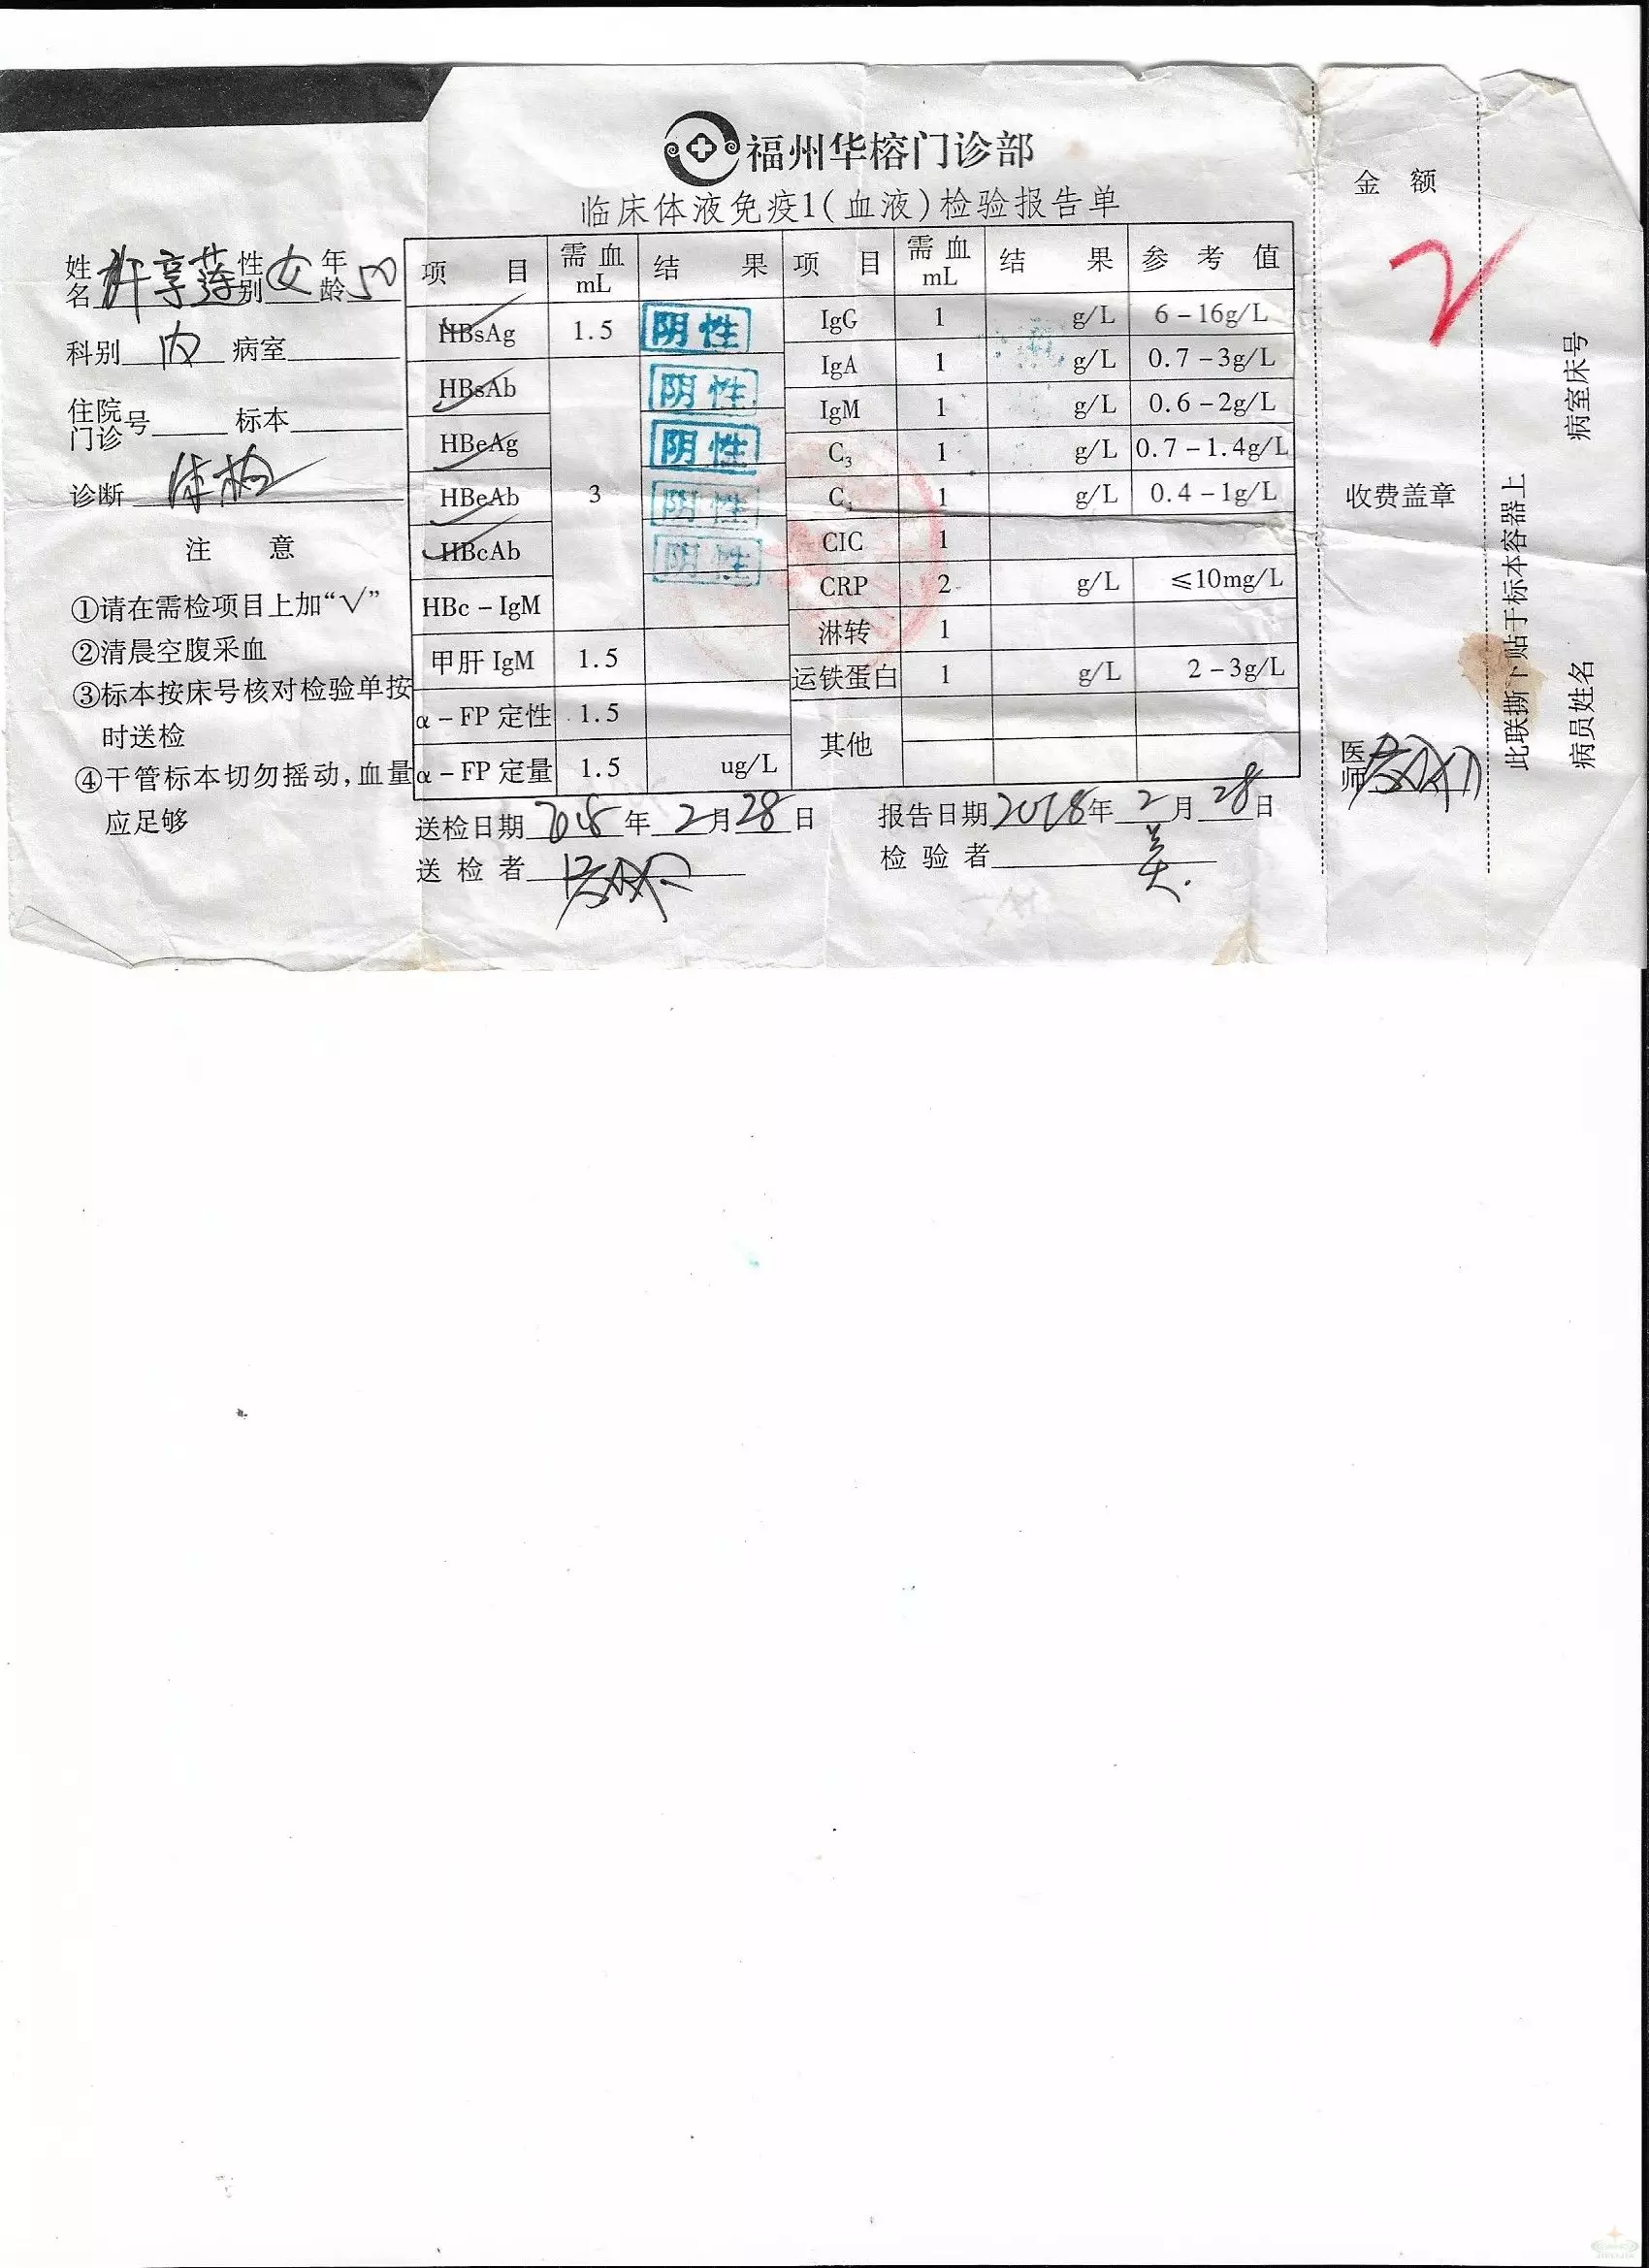 福州华榕门诊部
临床体液免疫1(血液)检验报告单
姓名 许享莲 性别 女 年龄 50
科别 内 病室
住院门诊号 标本
诊断 体检
注 意
①请在需检项目上加“√”
②清晨空腹采血
③标本按床号核对检验单按
时送检
④干管标本切勿摇动,血量
应足够
项 目 需血 mL 结 果 项 目 需血 mL 结 果 参 考 值
HBsAg 1.5 阴性 IgG 1 g/L 6-16g/L
HBsAb 阴性 IgA 1 g/L 0.7-3g/L
IgM 1 g/L 0.6-2g/L
HBeAg 阴性 C3 1 g/L 0.7-1.4g/L
HBeAb 3 阴性 C4 1 g/L 0.4-1g/L
HBcAb 阴性 CIC 1
HBc-IgM CRP 2 g/L ≤10mg/L
淋转 1
甲肝IgM 1.5 运铁蛋白 1 g/L 2-3g/L
α-FP定性 1.5 其他
α-FP定量 1.5 ug/L
送检日期 2018年 2月 28日 报告日期 2018年 2月 28日
送检者 检验者
金 额
收费盖章
医师
此联撕下贴于标本容器上
病室床号
病员姓名